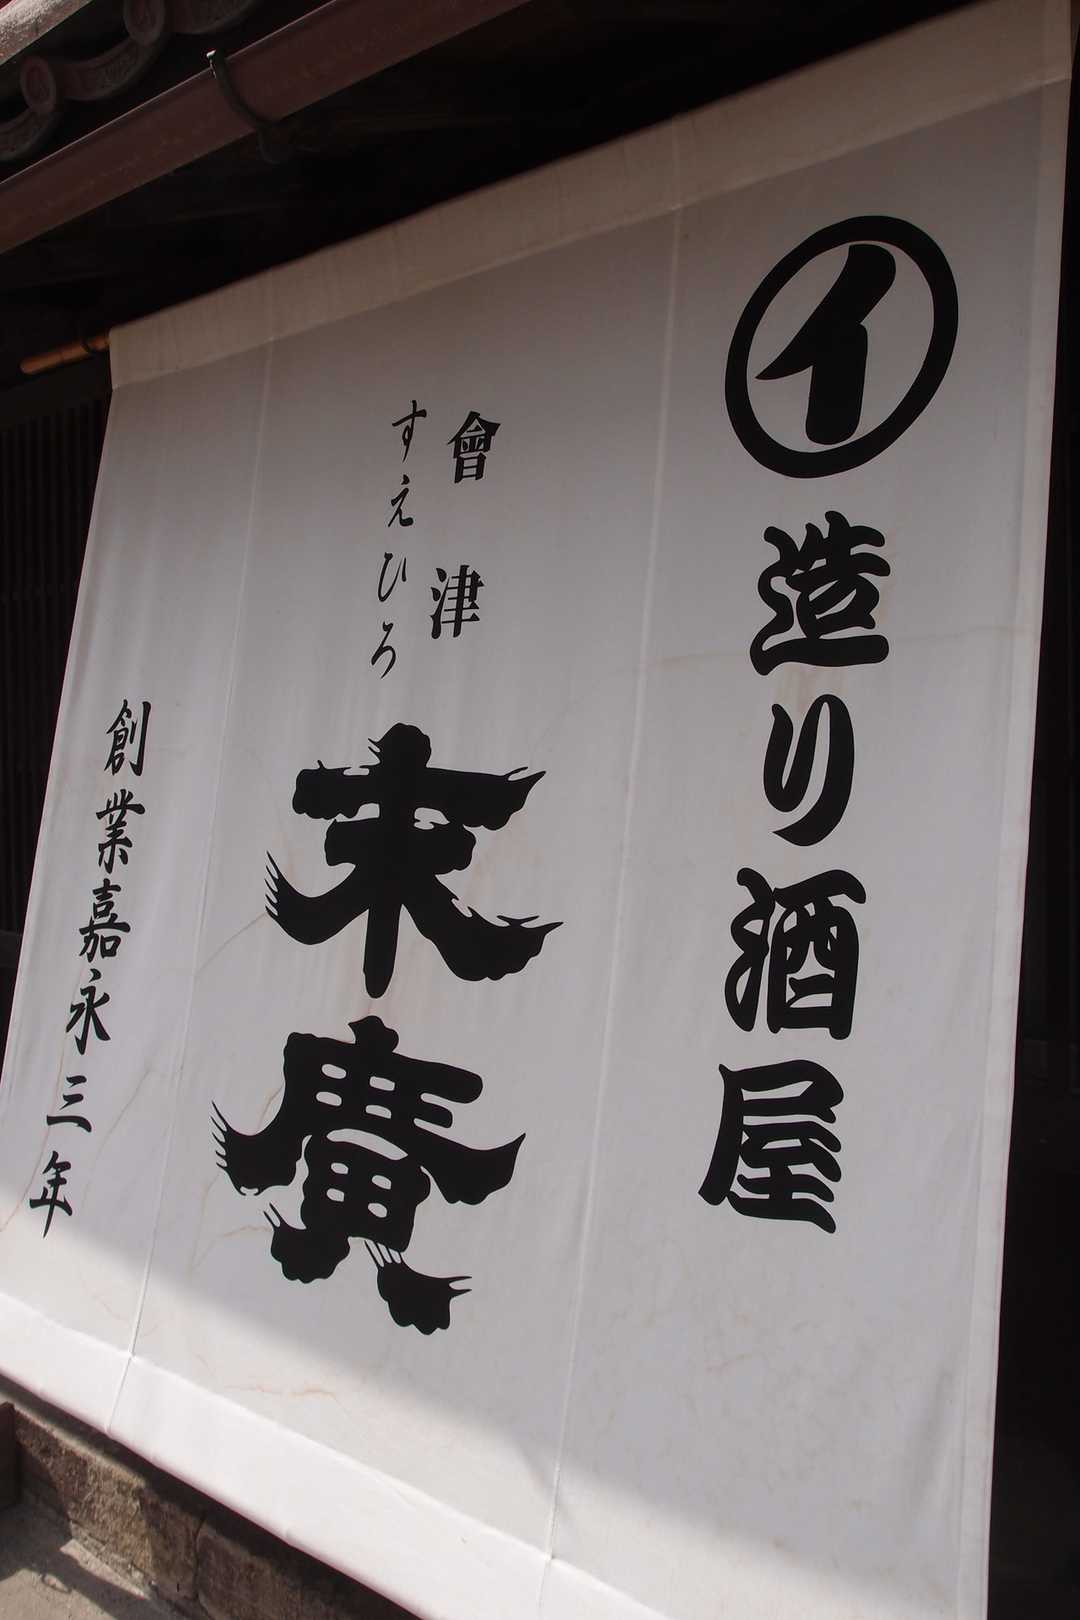 イ
造り酒屋
會津
すえひろ
末廣
創業嘉永三年